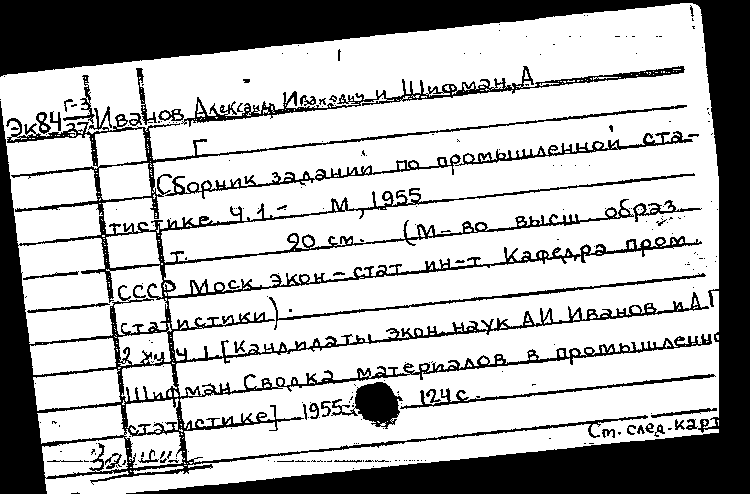 Эк84 Г-3/27 Иванов, Александр Иванович и Шифман, А.
Г
Сборник заданий по промышленной ста-
тистике. Ч. 1.- М., 1955
т. 20 см. (М-во высш образ
СССР Моск. экон-стат ин-т. Кафедра пром.
статистики).
Ч 1 [Кандидаты экон. наук А.И. Иванов и А.Г
Шифман Сводка материалов в промышленно
статистике] 1955 124 с.
См. след. карт